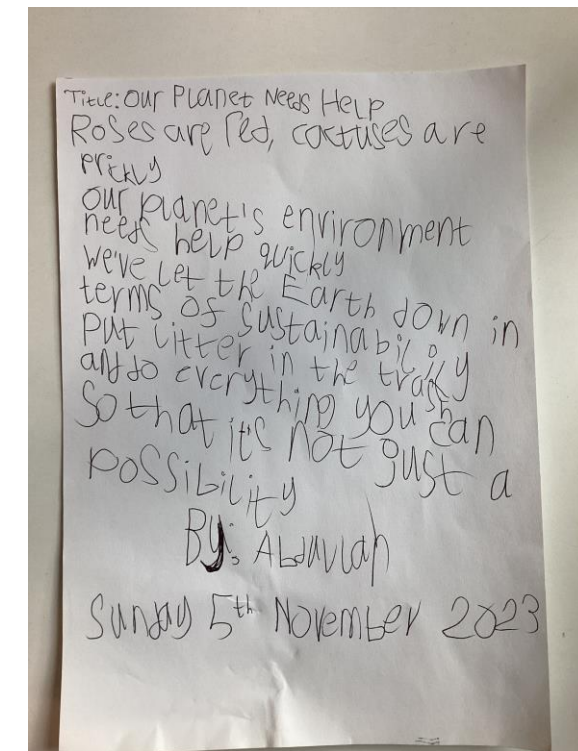 Title: Our Planet Needs Help
Roses are red, cactuses are
prickly
Our planet's environment
needs help quickly
We've let the Earth down in
terms of sustainability
Put litter in the trash
and do everything you can
So that it's not just a
possibility
By: Abdullah
Sunday 5th November 2023